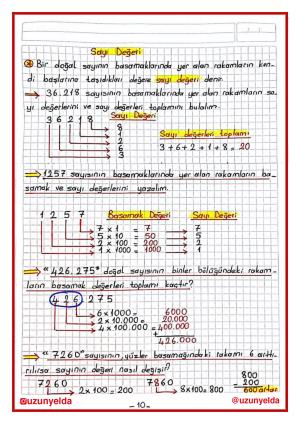 Sayı Değeri
Bir doğal sayının basamaklarında yer alan rakamların ken-
di başlarına taşıdıkları değere sayı değeri denir.
36.218 sayısının basamaklarında yer alan rakamların sa-
yı değerlerini ve sayı değerleri toplamını bulalım.
3 6 2 1 8 Sayı Değeri
8
1
2
6
3
Sayı değerleri toplamı
3+6+2+1+8=20
1257 sayısının basamaklarında yer alan rakamların ba-
samak ve sayı değerlerini yazalım.
1 2 5 7 Basamak Değeri Sayı Değeri
7 x 1 = 7 7
5 x 10 = 50 5
2 x 100 = 200 2
1 x 1000 = 1000 1
"426.275" doğal sayısının binler bölüğündeki rakam-
ların basamak değerleri toplamı kaçtır?
426 275
6 x 1000 = 6000
2 x 10.000 = 20.000
4 x 100.000 = 400.000
+
426.000
"7260" sayısının, yüzler basamağındaki rakamı 6 arttı-
rılırsa sayının değeri nasıl değişir?
7260 7860 800
2 x 100 = 200 8x100 = 800 - 200
600 artar
@uzunyelda - 10 - @uzunyelda